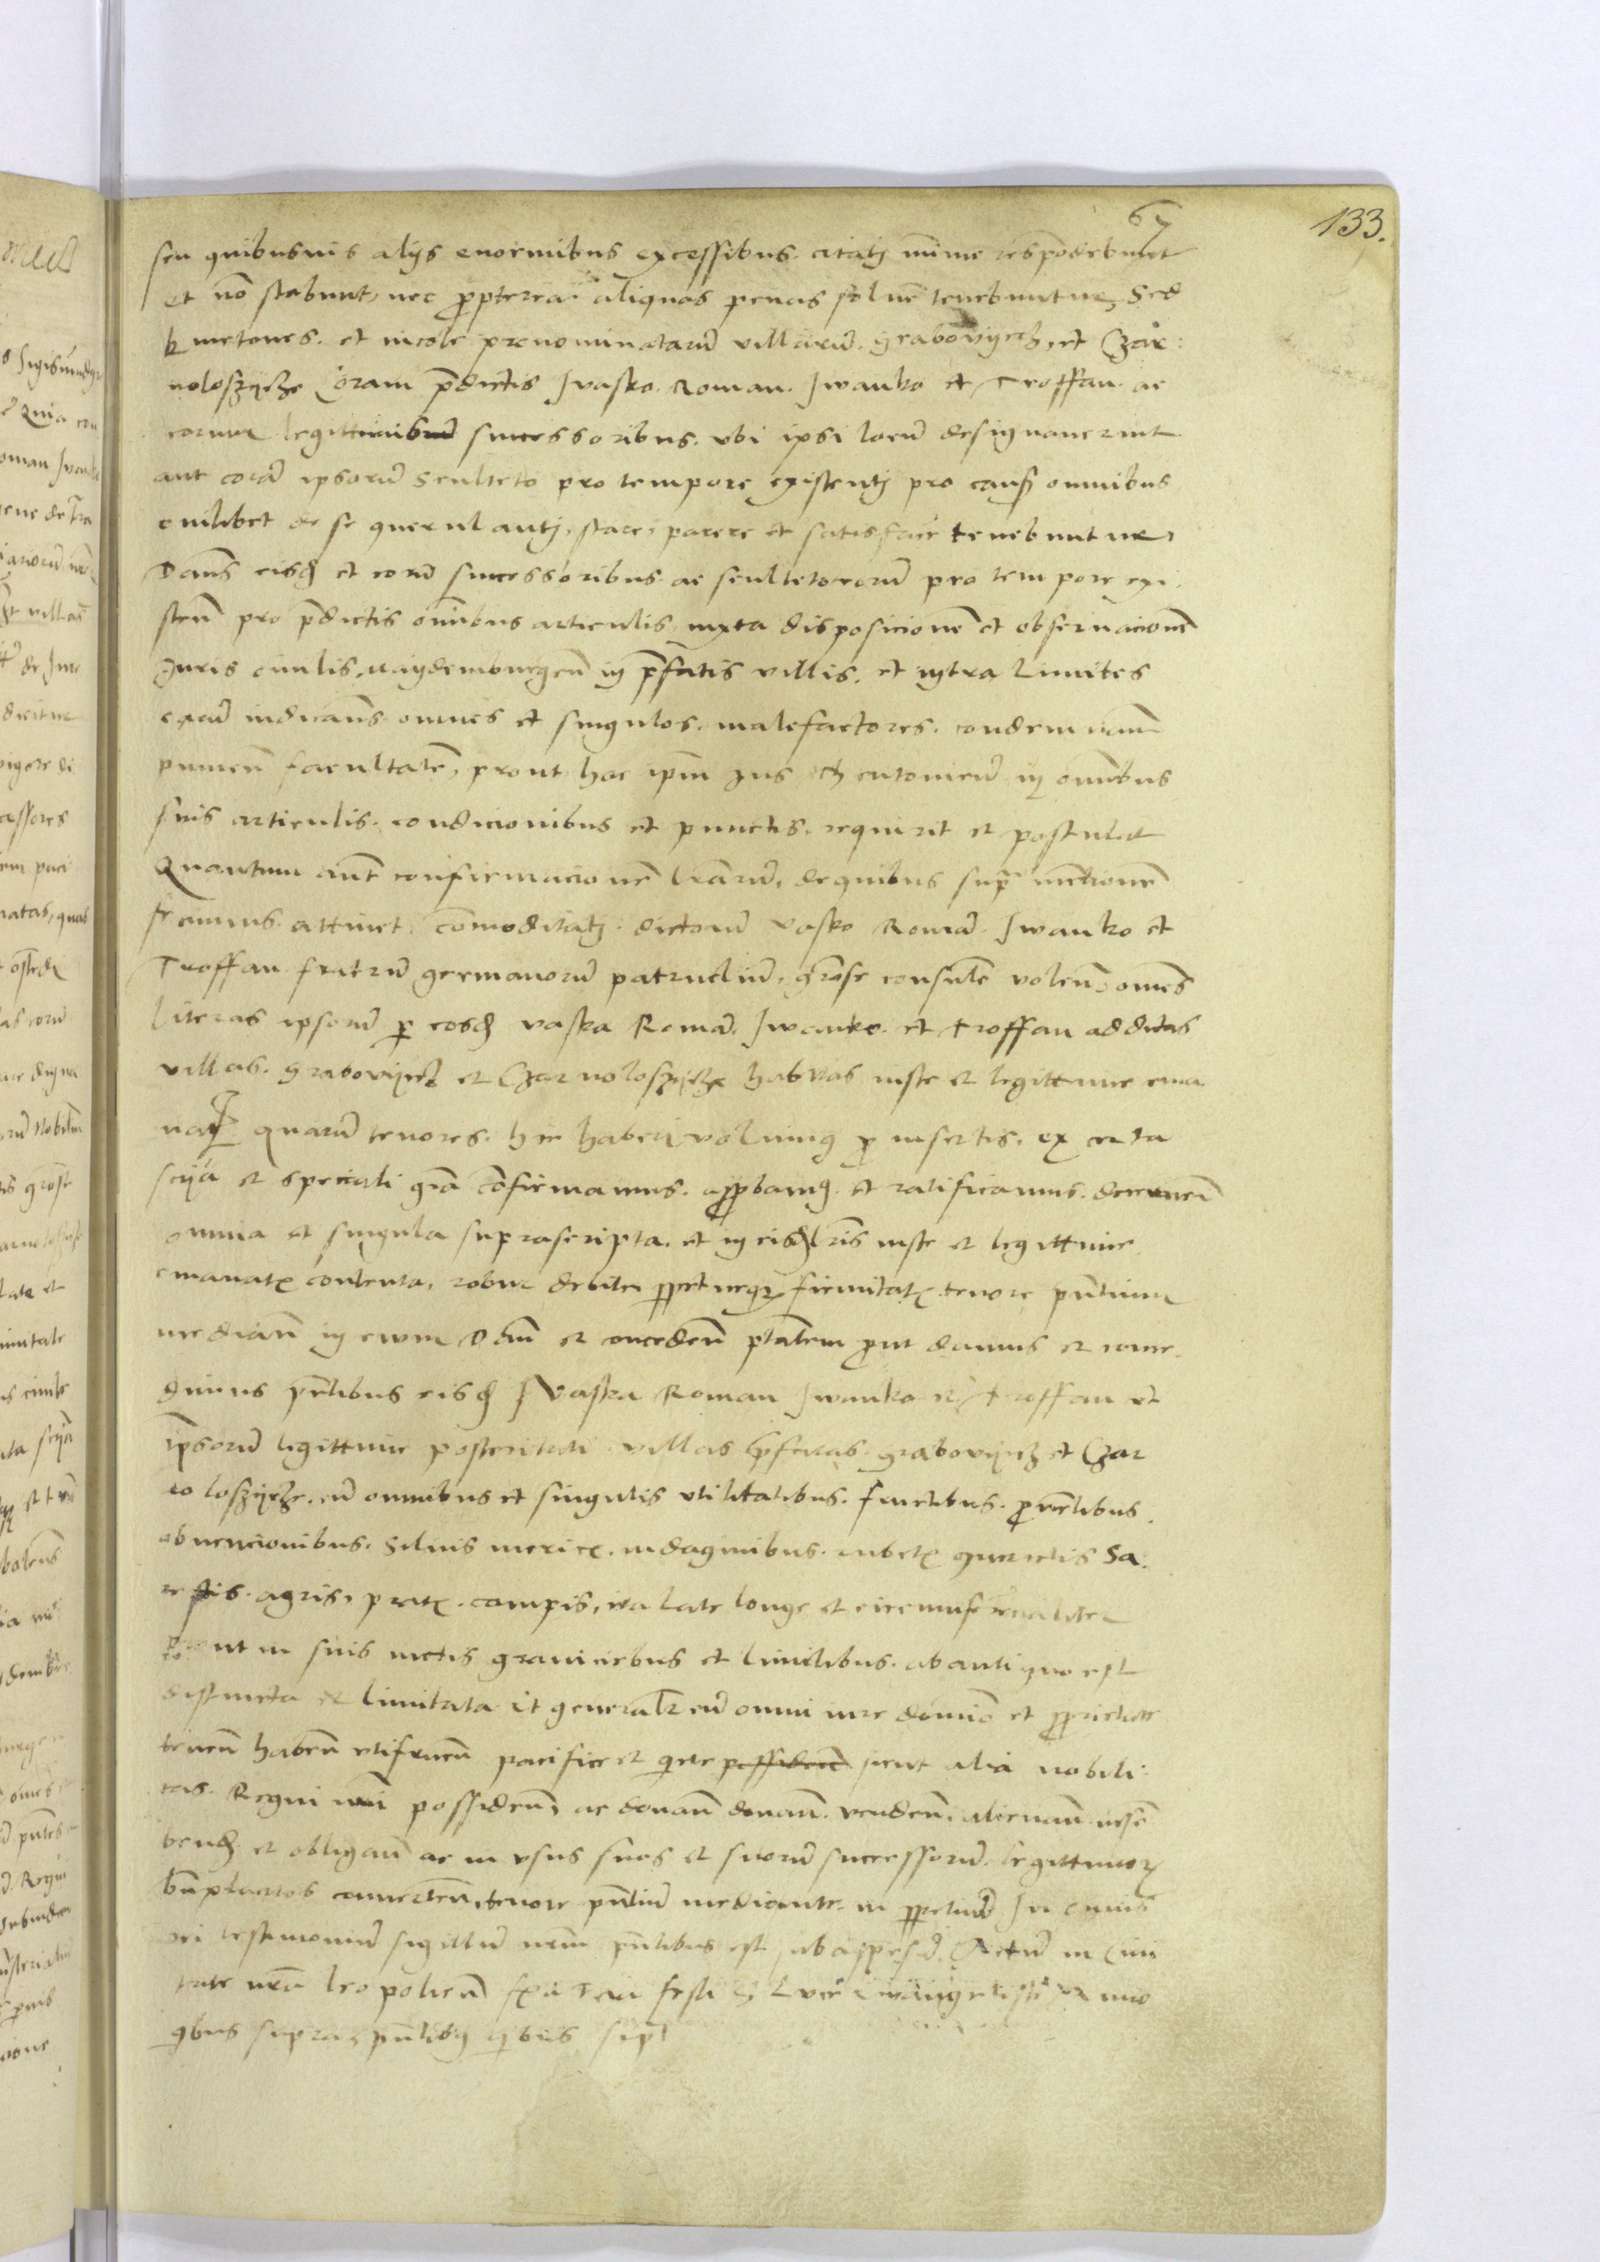 67
133.
seu quibusuis alijs enormibus excessibus citatj mīme respōdebunt
et nō stabunt, nec p̄pterea aliquas penas solue͞ tenebuntur, Sed
kmetones et incole prenominatarū villarū grabovyecz et Czar
nolozyche Coram p̄dictis Ivasko Roman Iwanko et Troffan ac
eorum legittimis successoribus vbi ipsi locū designauerint
aut corā ipsorū sculteto pro tempore existentj pro caus͞ omnibus
cuilibet de se querulantj, stare, parere et satisfac͞e tenebuntur,
Dan͞s eisd͞ et eorū successoribus ac scultetorum pro tempore exi
sten͞ pro p̄dictis omībus articulis iuxta disposicionē et obseruacionē
Iuris ciuilis maydemburgen͞ in p̄fatis villis et intra limites
earū iudican͞s omnes et singulos malefactores condemnan͞
punien͞ facultatē, prout hoc ip̄m Ius theutonicū in omībus
suis articulis condicionibus et punctis requirit et postulat
Quantum aut͞ confirmacionē l͞rarū, de quibus supr͞ mencionē
fecimus attinet, cōmoditatj dictorū vasko Romā Iwanko et
Troffan fratrū germanorū patrueliū gr͞ose consule͞ volen͞ omēs
literas ipsorū p̄ eosd͞ vaska Romā Iwanko et Troffan ad dictas
villas grabovyecz et Czarnolozyche habitas iuste et legittime ema
natas quarū tenores hic haberi volumus p̄ insertis ex certa
scīa et speciali grā cōfirmamus app̄bamq͞ et ratificamus decernen͞
omnia et singula suprascripta et in eisd͞ l͞ris iuste et legittime
emanatꝭ contenta, robur debite p̄petueqꝫ firmitatꝭ tenore pn͞tium
median͞ in ewm Dan͞ et conceden͞ ptatem put damus et conce
dimus pn͞tibus eisd͞ Ivaska Roman Iwanko et Troffan et
ip̄sorū legittime posteritati villas p̄fatas grabovyecz et Czar
nolozyche, cū omnibus et singulis vtilitatibus fructibus p̄uentibus
obuencionibus Siluis mericꝭ indaginibus rubetꝭ quercetis Sa
agris, pratꝭ campis, ita late longe et circumferencialiter
prout in suis metis graniciebus et limitibus ab antiquo est
distincta et limitata et generalr͞ cū omni iure domio͞ et p̄prietate
tenen͞ haben͞ vtifruen͞ pacifice et quiete possiden͞ sicut alia nobili
tas Regni nr͞i possiden͞, ac donan͞ donan͞ venden͞ alienan͞
et obligan͞ ac in vsus suos et suorū successorū legittimorꝫ
bn͞placitos conuerten͞ tenore pn͞tium mediante in p̄petuū In cuius
rei testimoniū sigillū nr͞m pn͞tibus est subappensū Actum in Ciui
tate nr͞a leopolien͞ feria festi Luce Ewangeliste Anno
quibus supra, pn͞tibq͞ quibus sup͞